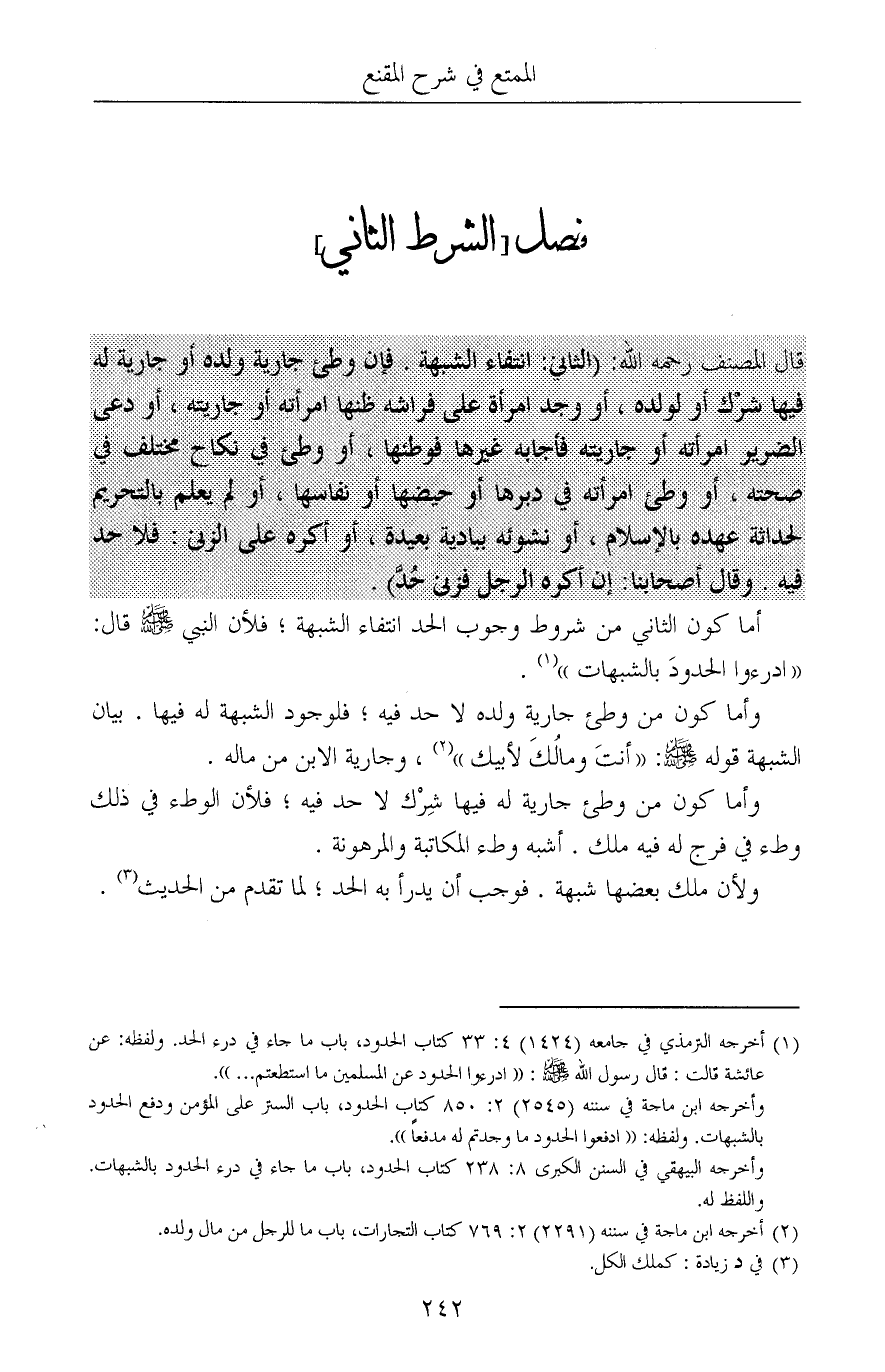 الممتع في شرح المقنع
فصل [الشرط الثاني]
قال المصنف رحمه الله: (الثاني: انتفاء الشبهة . فإن وطئ جارية ولده أو جارية له
فيها شرْك أو لولده ، أو وجد امرأة على فراشه ظنها امرأته أو جاريته ، أو دعى
الضرير امرأته أو جاريته فأجابه غيرها فوطئها ، أو وطئ في نكاح مختلف في
صحته ، أو وطئ امرأته في دبرها أو حيضها أو نفاسها ، أو لم يعلم بالتحريم
لحداثة عهده بالإسلام ، أو نشوئه ببادية بعيدة ، أو أكره على الزنى : فلا حد
فيه . وقال أصحابنا: إن أكره الرجل فزنى حُدَّ) .
أما كون الثاني من شروط وجوب الحد انتفاء الشبهة ؛ فلأن النبي ﷺ قال:
«ادرءوا الحدودَ بالشبهات»(١) .
وأما كون من وطئ جارية ولده لا حد فيه ؛ فلوجود الشبهة له فيها . بيان
الشبهة قوله ﷺ: «أنتَ ومالُكَ لأبيك»(٢) ، وجارية الابن من ماله .
وأما كون من وطئ جارية له فيها شِرْك لا حد فيه ؛ فلأن الوطء في ذلك
وطء في فرج له فيه ملك . أشبه وطء المكاتبة والمرهونة .
ولأن ملك بعضها شبهة . فوجب أن يدرأ به الحد ؛ لما تقدم من الحديث(٣) .
(١) أخرجه الترمذي في جامعه (١٤٢٤) ٤: ٣٣ كتاب الحدود، باب ما جاء في درء الحد. ولفظه: عن
عائشة قالت : قال رسول الله ﷺ : «ادرءوا الحدود عن المسلمين ما استطعتم...».
وأخرجه ابن ماجة في سننه (٢٥٤٥) ٢: ٨٥٠ كتاب الحدود، باب الستر على المؤمن ودفع الحدود
بالشبهات. ولفظه: «ادفعوا الحدود ما وجدتم له مدفعاً».
وأخرجه البيهقي في السنن الكبرى ٨: ٢٣٨ كتاب الحدود، باب ما جاء في درء الحدود بالشبهات.
واللفظ له.
(٢) أخرجه ابن ماجة في سننه (٢٢٩١) ٢: ٧٦٩ كتاب التجارات، باب ما للرجل من مال ولده.
(٣) في د زيادة : كملك الكل.
٢٤٢